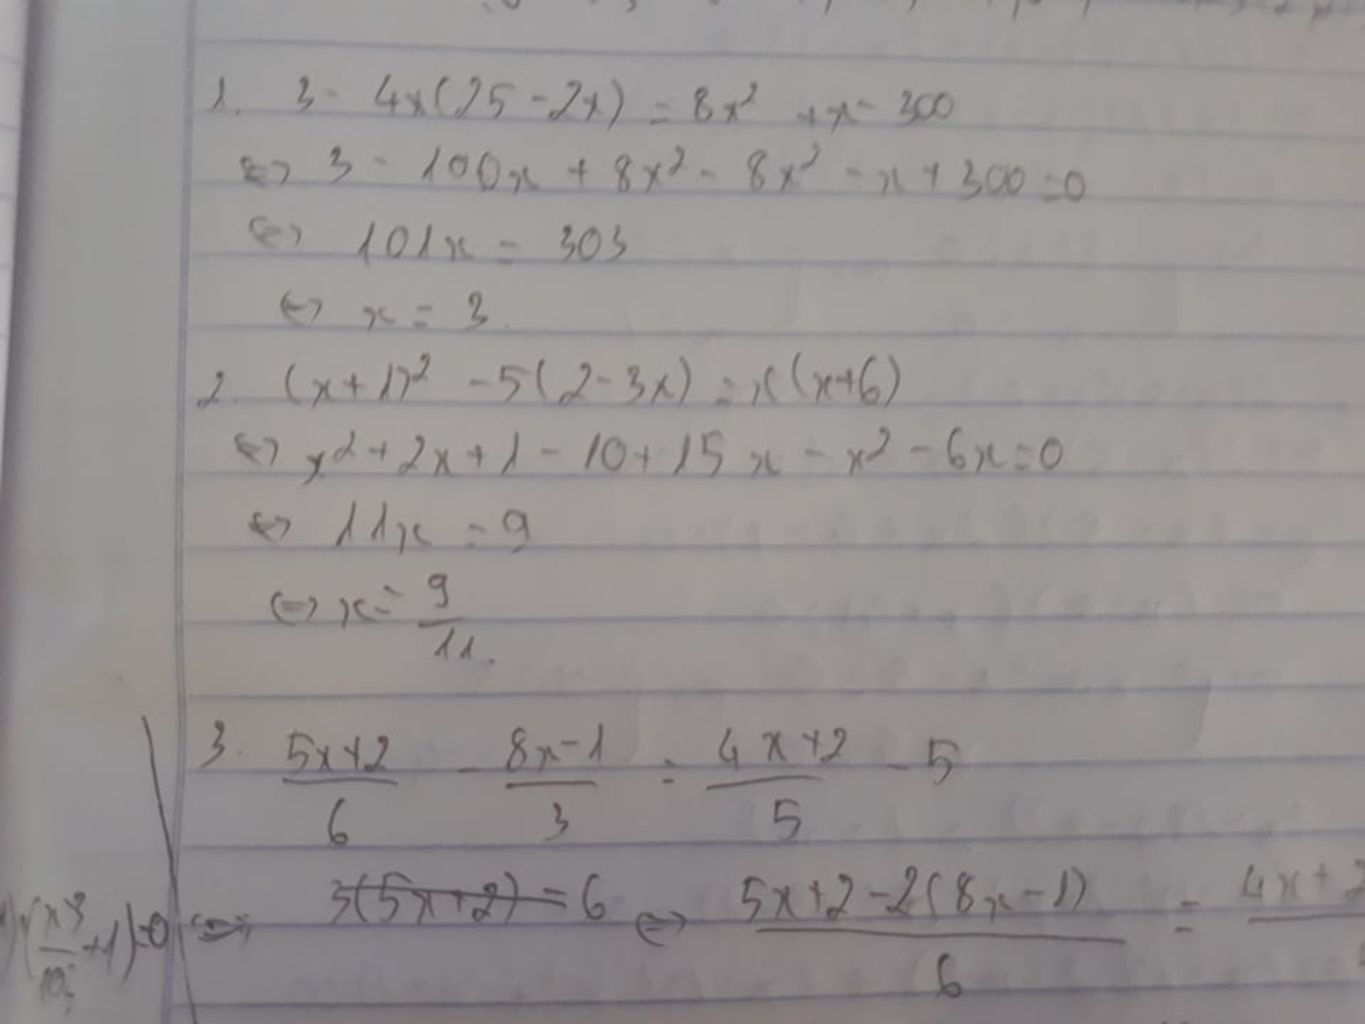 1. 3 - 4x(25 - 2x) = 8x² + x - 300
⇔ 3 - 100x + 8x² - 8x² - x + 300 = 0
⇔ 101x = 303
⇔ x = 3
2. (x+1)² - 5(2-3x) = x(x+6)
⇔ x² + 2x + 1 - 10 + 15x - x² - 6x = 0
⇔ 11x = 9
⇔ x = 9/11.
3. (5x+2)/6 - (8x-1)/3 = (4x+2)/5 - 5
3(5x+2) = 6 ⇔ (5x+2-2(8x-1))/6 = 4x+2
+1)=0 ⇔